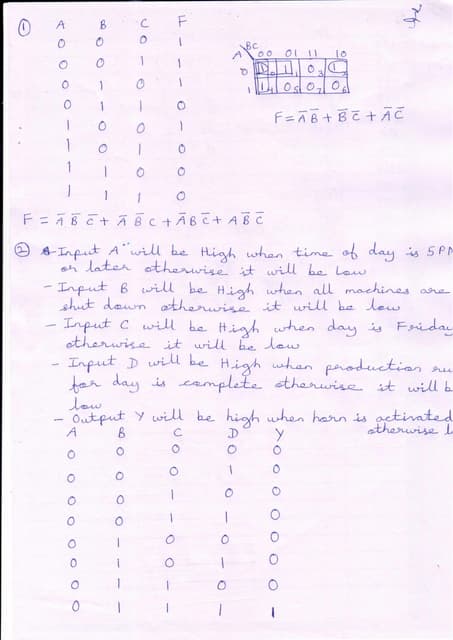 ① A B C F
0 0 0 1
0 0 1 1
0 1 0 1
0 1 1 0
1 0 0 1
1 0 1 0
1 1 0 0
1 1 1 0
A BC 00 01 11 10
0 1 0 1 1 0 3 1 2
1 1 4 0 5 0 7 0 6
F = A̅ B̅ + B̅ C̅ + A̅ C̅
F = A̅ B̅ C̅ + A̅ B̅ C + A̅ B C̅ + A B̅ C̅
② - Input A will be High when time of day is 5 PM
or later otherwise it will be Low
- Input B will be High when all machines are
shut down otherwise it will be low
- Input C will be High when day is Friday
otherwise it will be low
- Input D will be High when production ru
for day is complete otherwise it will b
low
- Output Y will be high when horn is activated
otherwise l
A B C D Y
0 0 0 0 0
0 0 0 1 0
0 0 1 0 0
0 0 1 1 0
0 1 0 0 0
0 1 0 1 0
0 1 1 0 0
0 1 1 1 1